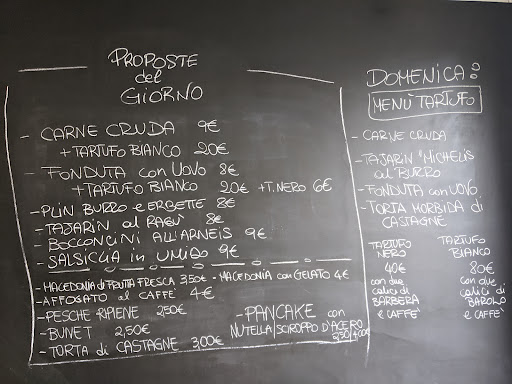 PROPOSTE
del
GIORNO
- CARNE CRUDA 9€
+ TARTUFO BIANCO 20€
- FONDUTA con UOVO 8€
+ TARTUFO BIANCO 20€ + T. NERO 6€
- PLIN BURRO e ERBETTE 8€
- TAJARIN al RAGÙ 8€
- BOCCONCINI ALL'ARNEIS 9€
- SALSICCIA in UMIDO 9€
- MACEDONIA di FRUTTA FRESCA 3,50€ - MACEDONIA con GELATO 4€
- AFFOGATO al CAFFÈ 4€
- PESCHE RIPIENE 2,50€
- BUNET 2,50€
- TORTA di CASTAGNE 3,00€
- PANCAKE con
NUTELLA/SCIROPPO D'ACERO
DOMENICA:
MENÙ TARTUFO
- CARNE CRUDA
- TAJARIN "MICHELIS
al BURRO
- FONDUTA con UOVO
- TORTA MORBIDA di
CASTAGNE
TARTUFO
NERO
40€
con due
calici di
BARBERA
e CAFFÈ
TARTUFO
BIANCO
80€
con due
calici di
BAROLO
e CAFFÈ